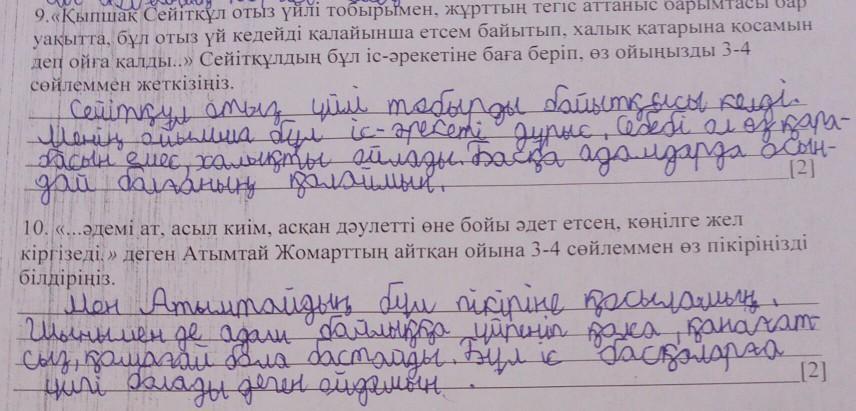 9.«Қыпшақ Сейітқұл отыз үйлі тобырымен, жұрттың тегіс аттаныс барымтасы бар
уақытта, бұл отыз үй кедейді қалайынша етсем байытып, халық қатарына қосамын
деп ойға қалды..» Сейітқұлдың бұл іс-әрекетіне баға беріп, өз ойыңызды 3-4
сөйлеммен жеткізіңіз.
Сейітқұл отыз үйлі тобырды байытқысы келді.
Менің ойымша бұл іс-әрекеті дұрыс, себебі ол өз қара-
басын емес, халықты ойлады. Басқа адамдарда осын-
дай болғанын қалаймын.
[2]
10. «...әдемі ат, асыл киім, асқан дәулетті өне бойы әдет етсең, көңілге жел
кіргізеді.» деген Атымтай Жомарттың айтқан ойына 3-4 сөйлеммен өз пікіріңізді
білдіріңіз.
Мен Атымтайдың бұл пікіріне қосыламын.
Шынымен де адам байлыққа үйреніп қалса, қанағат-
сыз, қомағай бола бастайды. Бұл іс басқаларға
үлгі болады деген ойдамын.
[2]